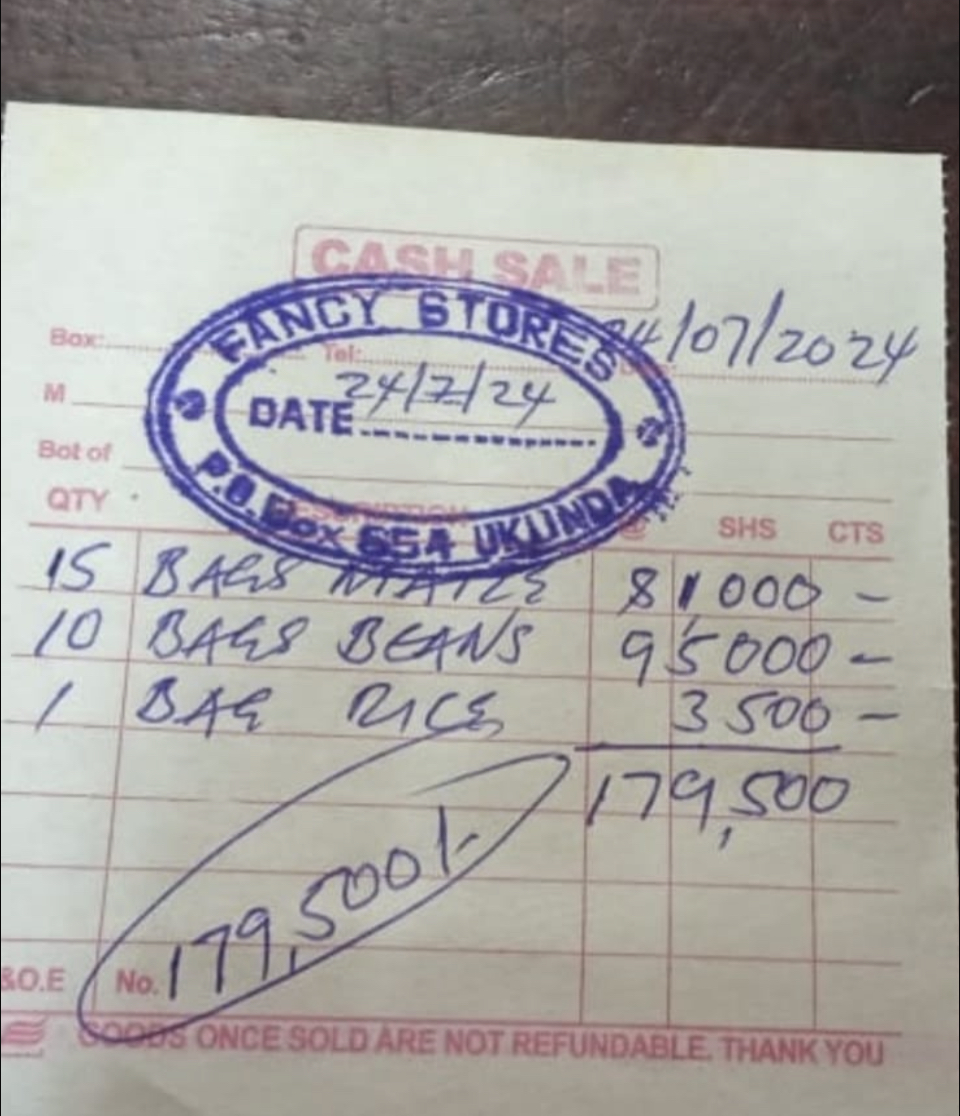 CASH SALE
FANCY STORES
Box: Tel: 24/07/2024
DATE 24/7/24
M
P.O. Box 654 UKUNDA
Bot of
QTY DESCRIPTION @ SHS CTS
15 BAGS MAIZE 81000 -
10 BAGS BEANS 95000 -
1 BAG RICE 3500 -
179,500
179,500/-
&O.E No.
GOODS ONCE SOLD ARE NOT REFUNDABLE. THANK YOU